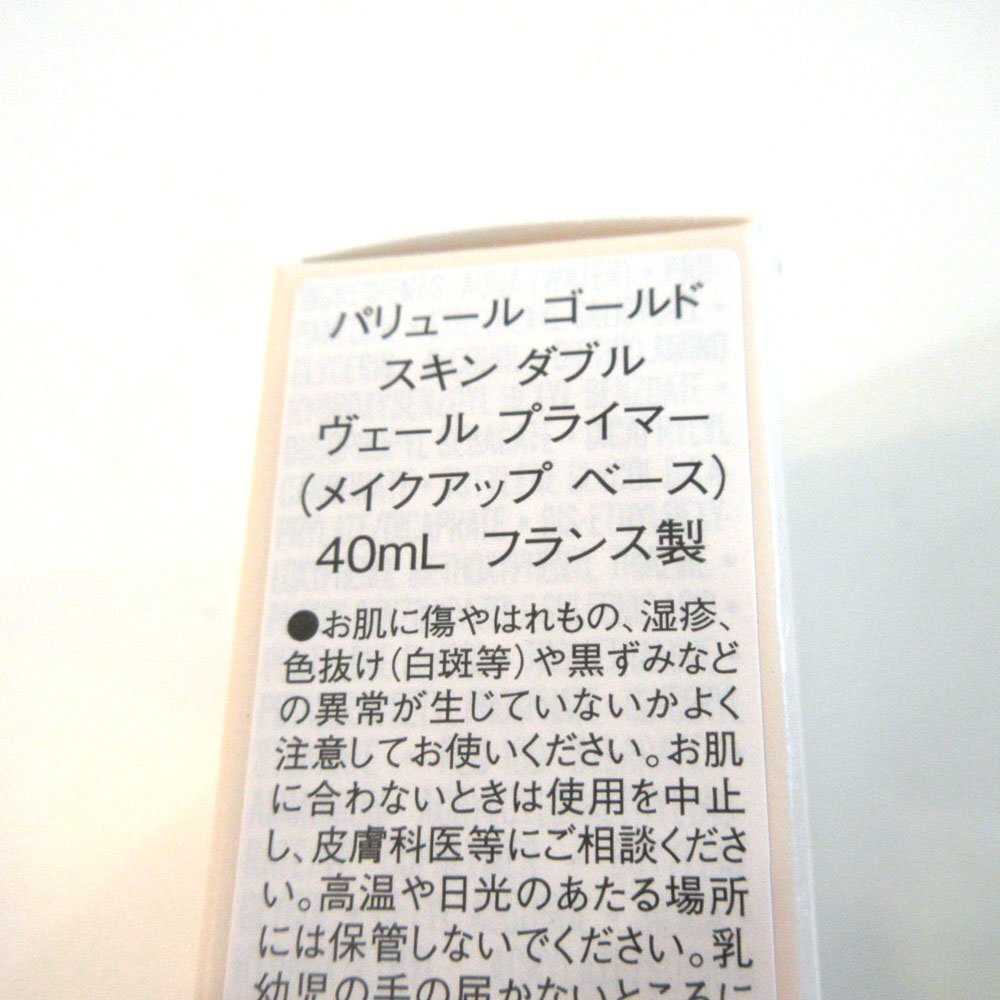 パリュール ゴールド
スキン ダブル
ヴェール プライマー
(メイクアップ ベース)
40mL フランス製
●お肌に傷やはれもの、湿疹、
色抜け(白斑等)や黒ずみなど
の異常が生じていないかよく
注意してお使いください。お肌
に合わないときは使用を中止
し、皮膚科医等にご相談くださ
い。高温や日光のあたる場所
には保管しないでください。乳
幼児の手の届かないところに